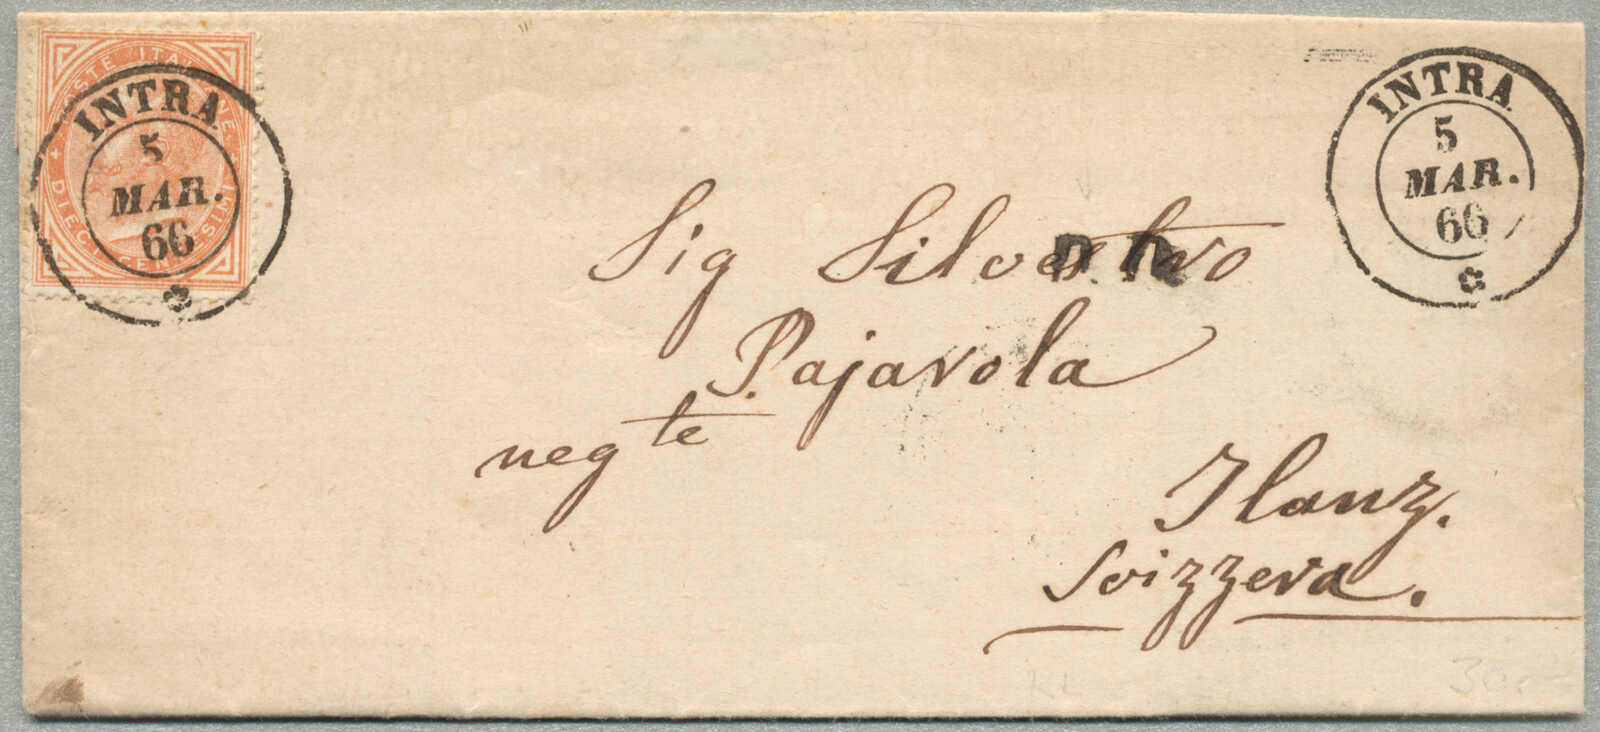 POSTE ITALIANE
DIECI CENTESIMI
INTRA
5
MAR.
66
INTRA
5
MAR.
66
Sig Silvestro
P.D.
Pajarola
neg te
Ilanz.
Svizzera.